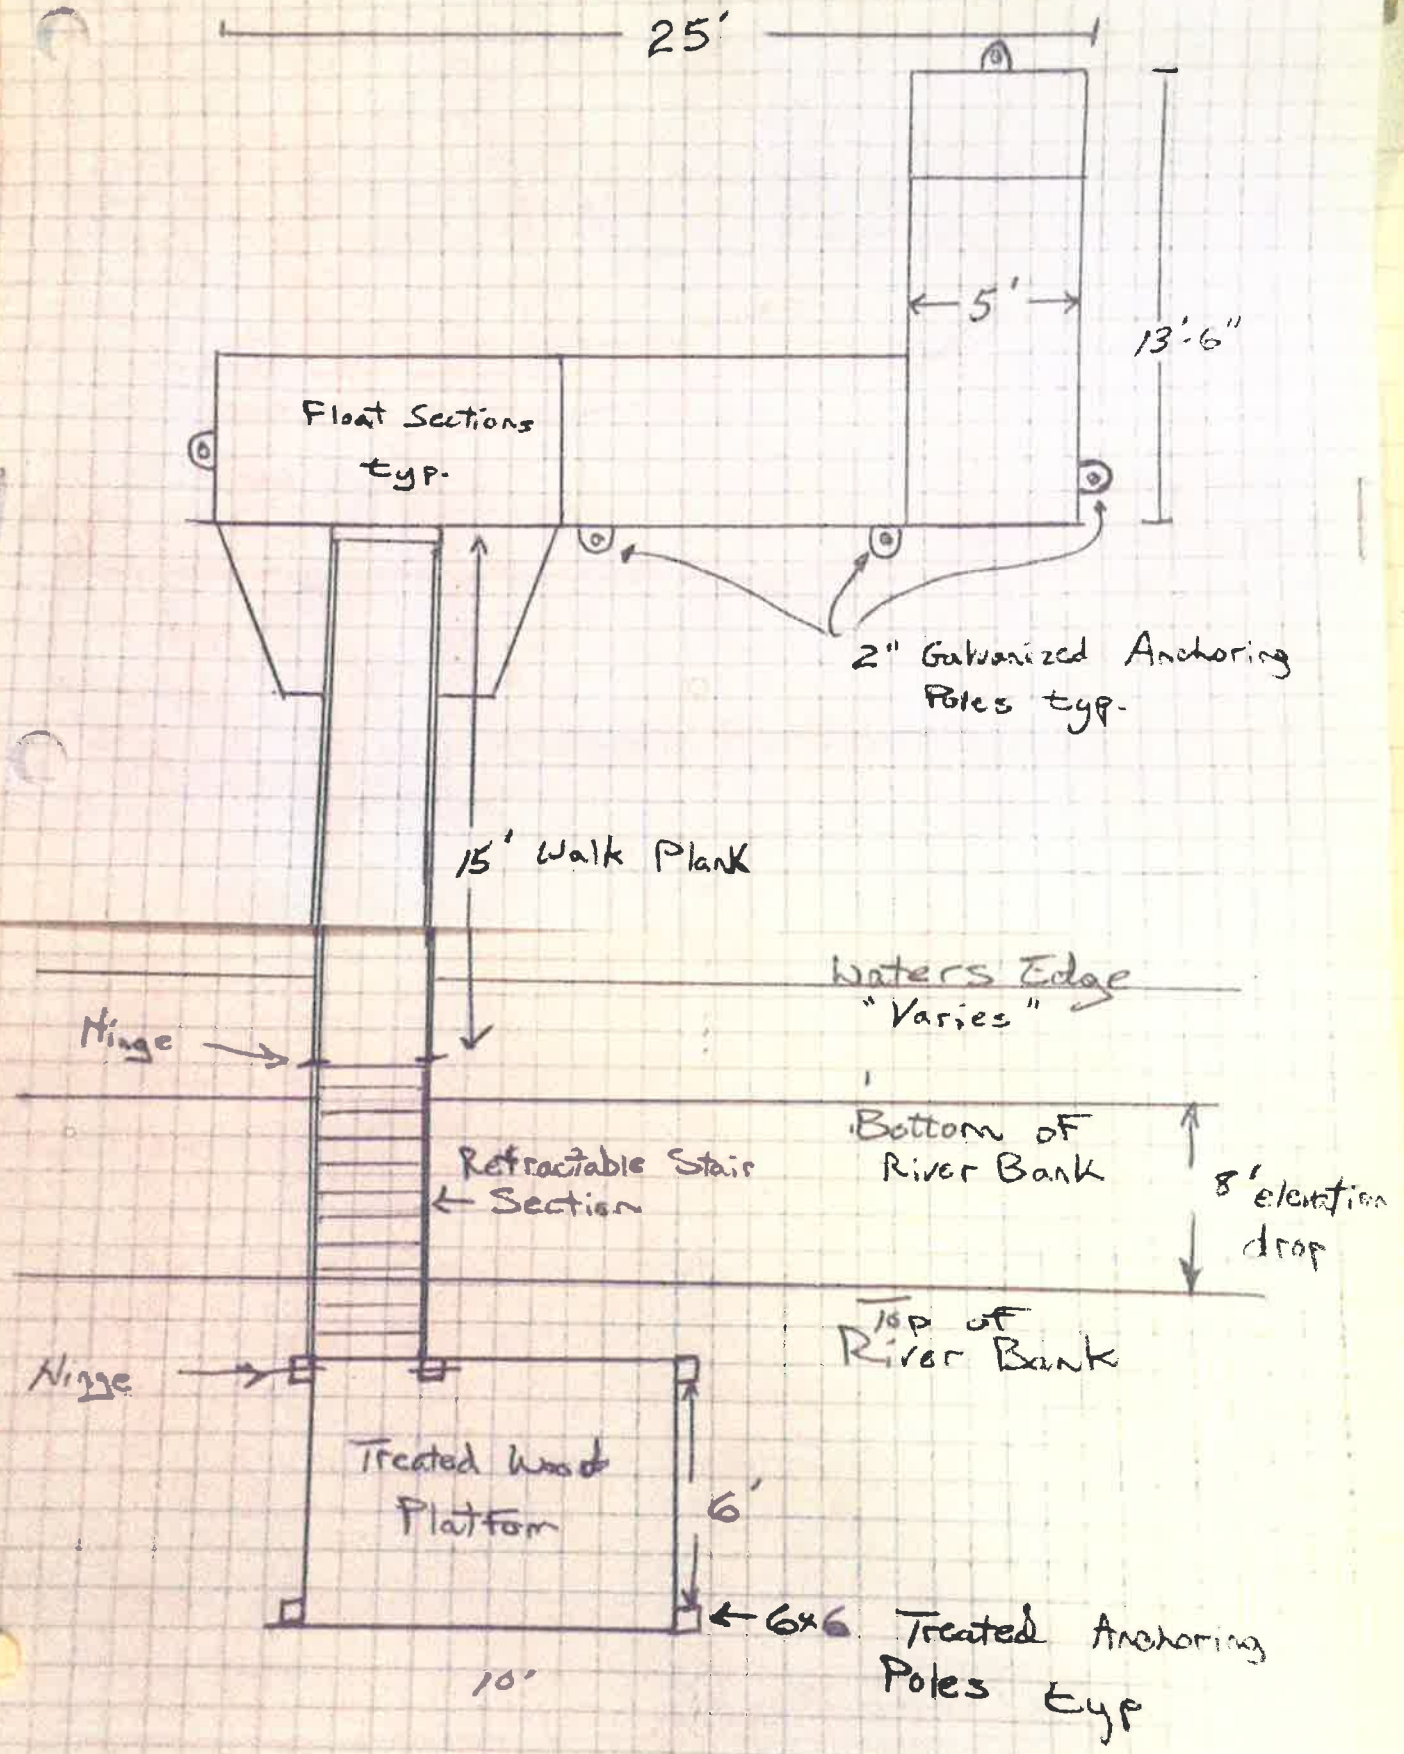 25'
5'
13'-6"
Float Sections
typ.
2" Galvanized Anchoring
Poles typ.
15' Walk Plank
Waters Edge
"Varies"
Hinge
Bottom of
River Bank
Retractable Stair
Section
8' elevation
drop
Top of
River Bank
Hinge
Treated Wood
Platform
6'
6x6 Treated Anchoring
Poles typ
10'